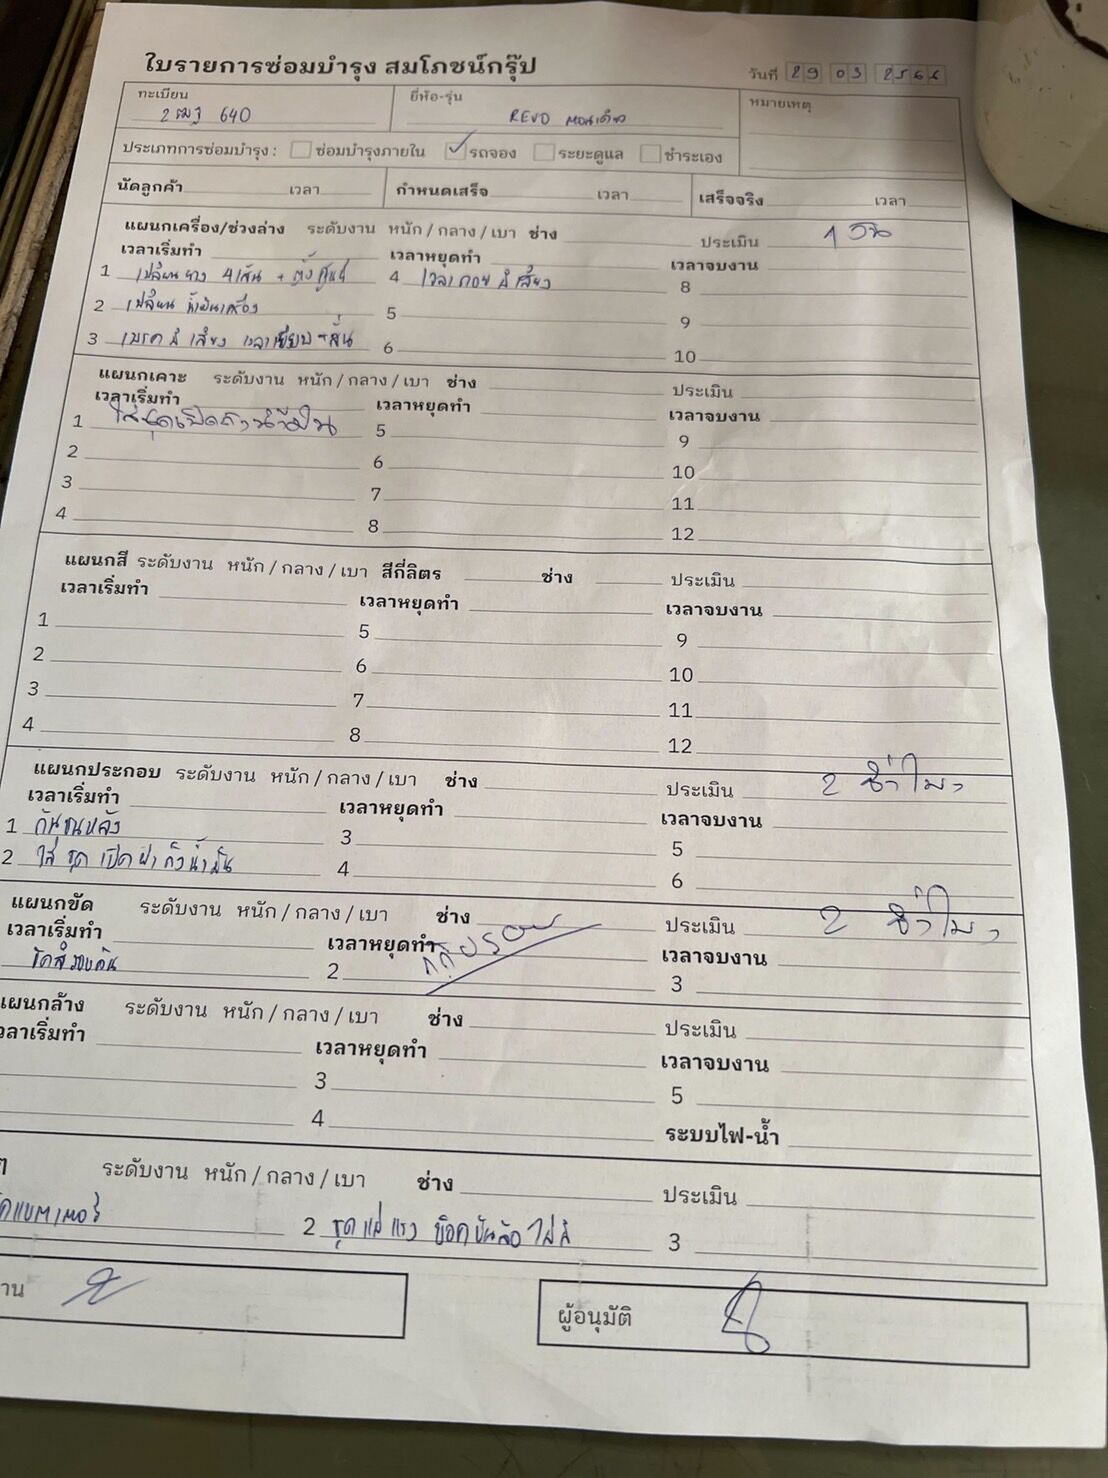 ใบรายการซ่อมบำรุง สมโภชน์กรุ๊ป
วันที่ 29 03 2566
ทะเบียน
640
ยี่ห้อ-รุ่น
REVO ตอนเดียว
หมายเหตุ
ประเภทการซ่อมบำรุง : ซ่อมบำรุงภายใน รถจอง ระยะดูแล ชำระเอง
นัดลูกค้า เวลา กำหนดเสร็จ เวลา เสร็จจริง เวลา
แผนกเครื่อง/ช่วงล่าง ระดับงาน หนัก / กลาง / เบา ช่าง ประเมิน 1 วัน
เวลาเริ่มทำ เวลาหยุดทำ เวลาจบงาน
1 เปลี่ยนยาง 4 เส้น + ตั้งศูนย์ 4 เวลาถอย มีเสียง 8
2 เปลี่ยน น้ำมันเครื่อง 5 9
3 เบรค มีเสียง เวลาเหยียบ + สั่น 6 10
แผนกเคาะ ระดับงาน หนัก / กลาง / เบา ช่าง ประเมิน
เวลาเริ่มทำ เวลาหยุดทำ เวลาจบงาน
1 ใส่ชุดเปิดถังน้ำมัน 5 9
2 6 10
3 7 11
4 8 12
แผนกสี ระดับงาน หนัก / กลาง / เบา สีกี่ลิตร ช่าง ประเมิน
เวลาเริ่มทำ เวลาหยุดทำ เวลาจบงาน
1 5 9
2 6 10
3 7 11
4 8 12
แผนกประกอบ ระดับงาน หนัก / กลาง / เบา ช่าง ประเมิน 2 ชั่วโมง
เวลาเริ่มทำ เวลาหยุดทำ เวลาจบงาน
1 กันชนหลัง 3 5
2 ใส่ ชุด เปิด ฝา ถังน้ำมัน 4 6
แผนกขัด ระดับงาน หนัก / กลาง / เบา ช่าง ประเมิน 2 ชั่วโมง
เวลาเริ่มทำ เวลาหยุดทำ เวลาจบงาน
ขัดสีรอบคัน 2 3
แผนกล้าง ระดับงาน หนัก / กลาง / เบา ช่าง ประเมิน
เวลาเริ่มทำ เวลาหยุดทำ เวลาจบงาน
3 5
4 ระบบไฟ-น้ำ
ระดับงาน หนัก / กลาง / เบา ช่าง ประเมิน
2 3
ผู้อนุมัติ